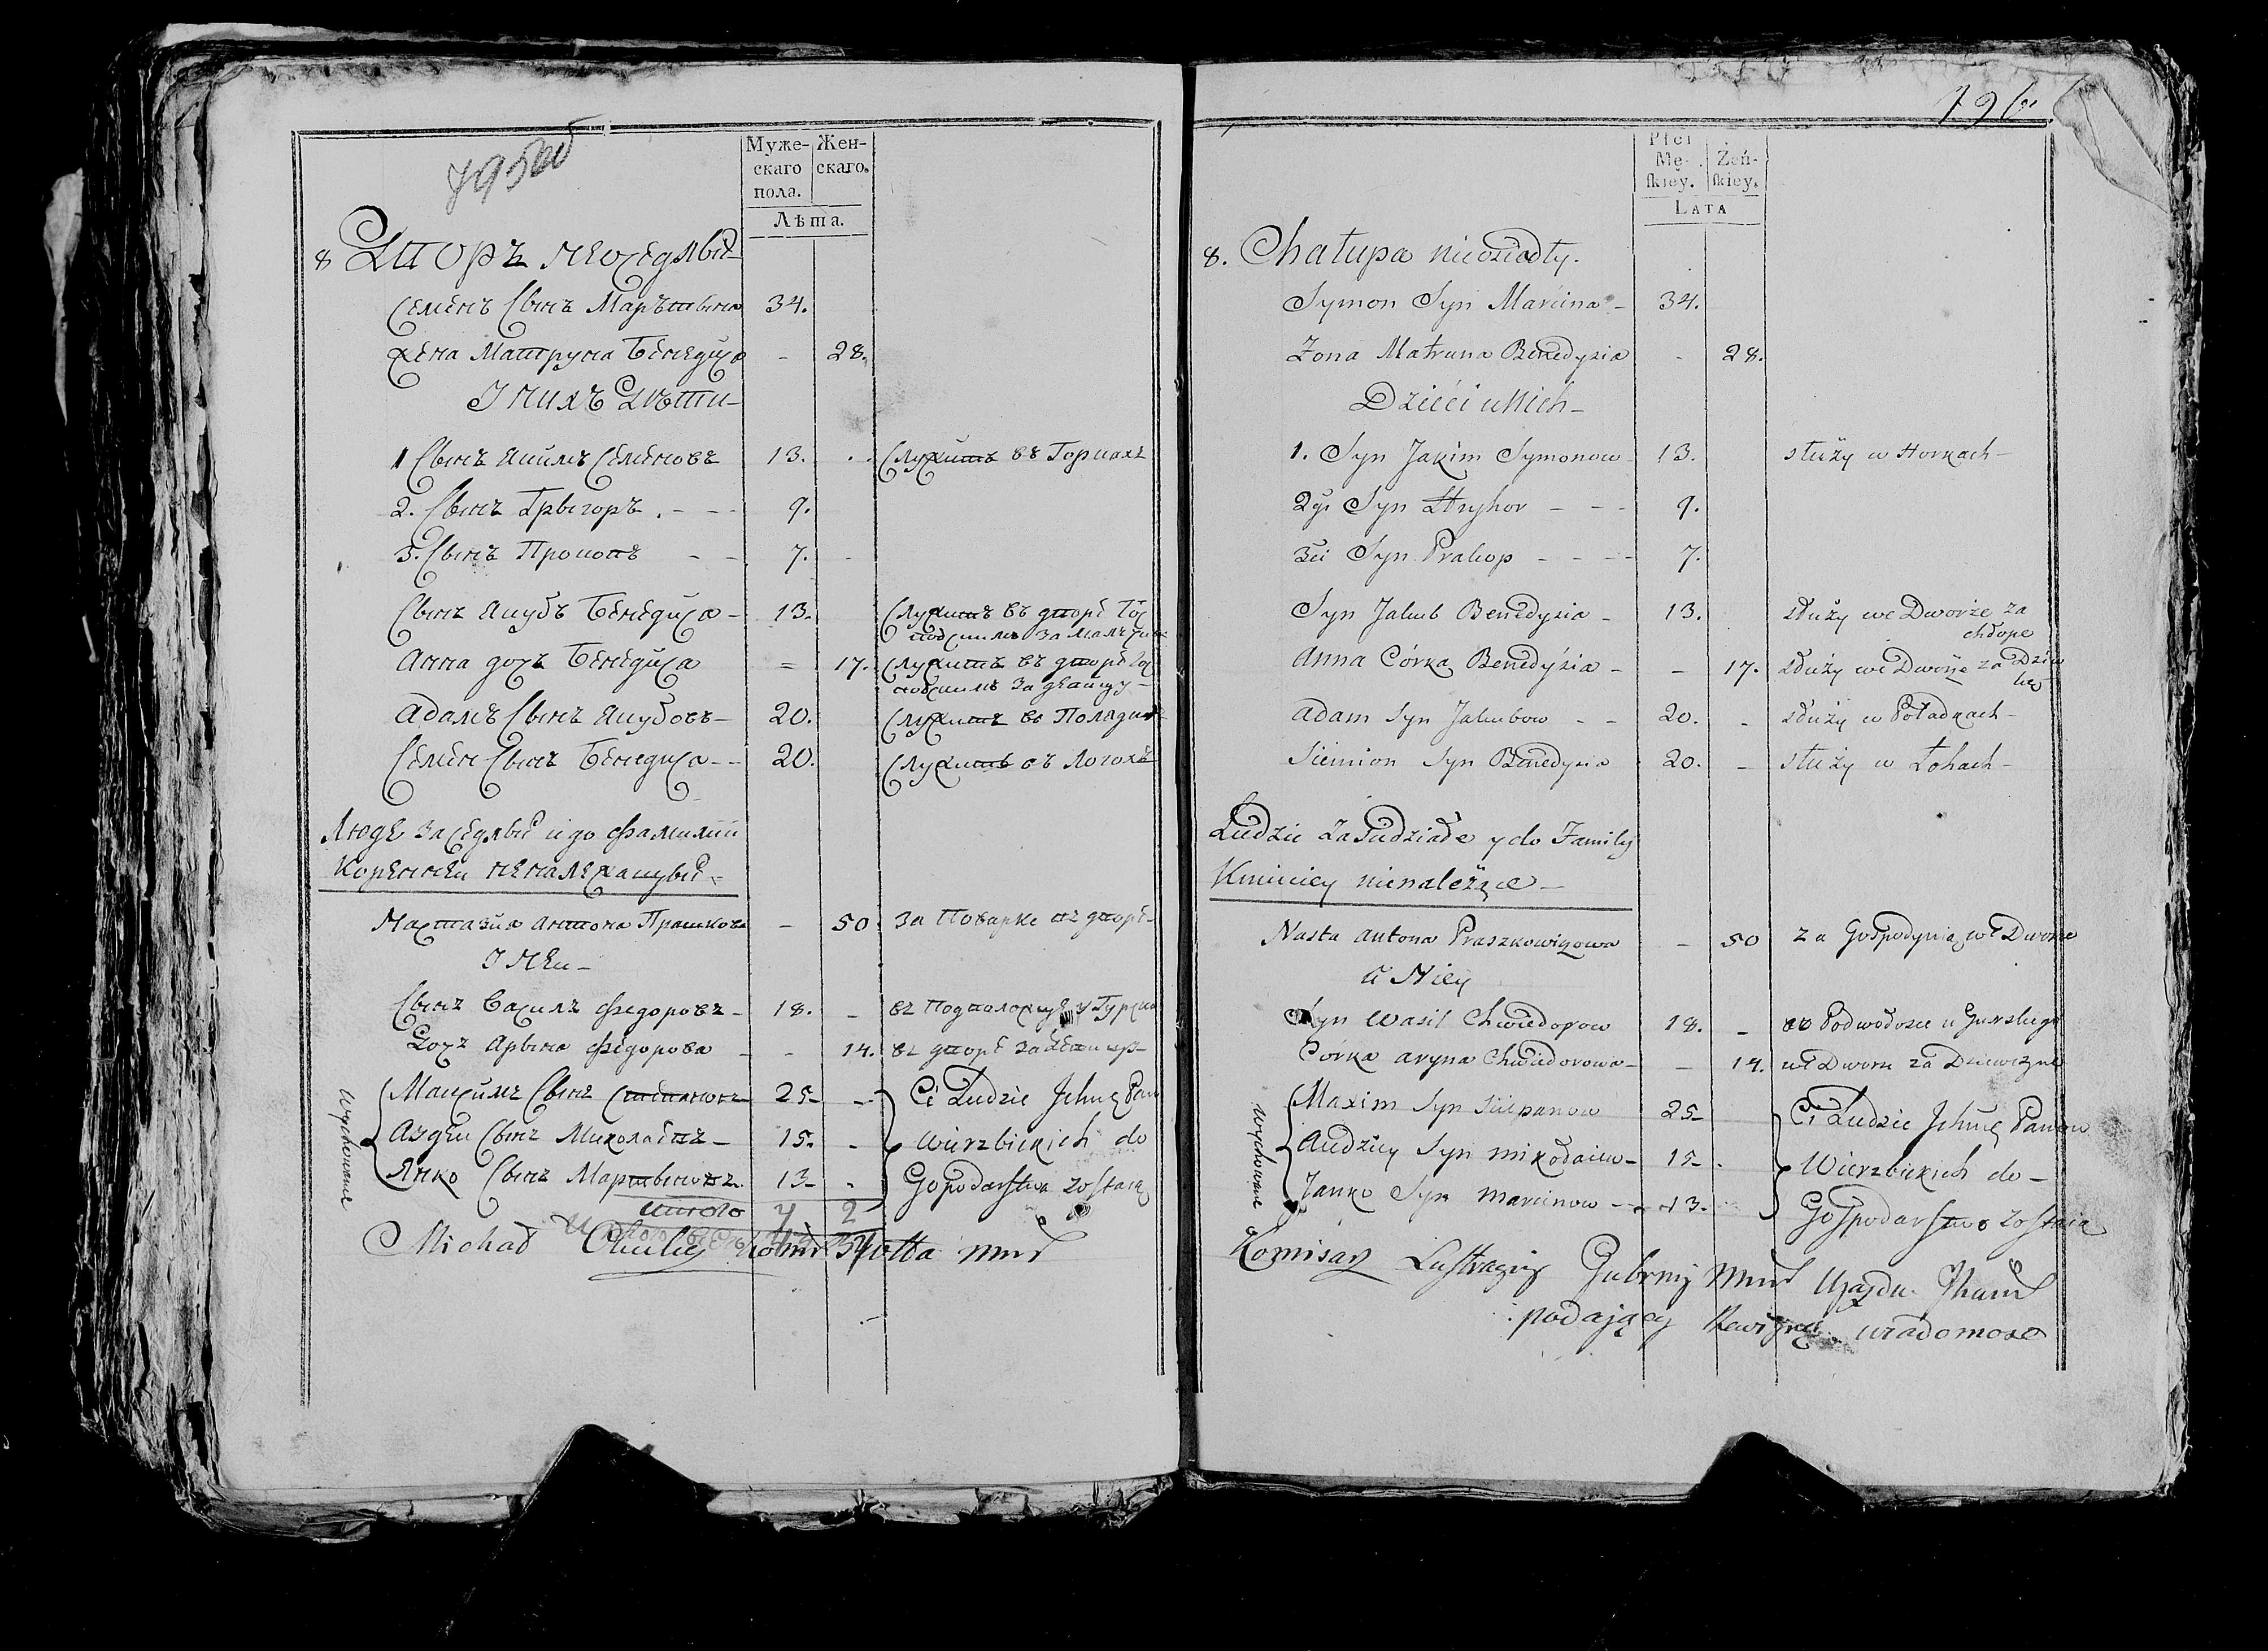 795 об
Муже- Жен-
скаго скаго.
пола.
Лѣта.
8 Дворъ неоседлы
Семенъ Сынъ Марътына 34.
жена Матруна Бенедиса - 28.
У нихъ Дѣти -
1 Сынъ Якимъ Семеновъ 13. Служитъ въ Горкахъ
2. Сынъ Грыгоръ . - - 9.
3. Сынъ Прокопъ - - 7. -
Сынъ Якубъ Бенедиса - 13. Служитъ въ дворе Гос
подскимъ за
Анна дочъ Бенедиса = 17. Служитъ въ дворе Гос
подскимъ за девицу -
Адамъ Сынъ Якубовъ - 20. Служитъ во
Семенъ Сынъ Бенедиса - - 20. Служитъ въ Логохъ
Люде заседлые и до фамилии
Коренней неналежащые -
Настазия Антона Прашкова - 50. за Поварке въ дворе -
У Ней -
Сынъ Василъ Федоровъ - 18. - въ
Дочъ Арына Федорова - - 14. въ дворе за
Wychowane
Максимъ Сынъ Степановъ 25 - - Ci Ludzie Jchmę Panow
Андей Сынъ Миколаевъ - 15. - Wierzbickich do
Янко Сынъ Мартыновъ. 13 - - Gopodarstwa zostaią
итого 7 2
Michał
796
Płci
Mę- Żeń-
skiey. skiey.
LATA
8. Chałupa nieosiadły.
Symon Syn Marcina - 34.
Żona Matruna Benedysia - 28.
Dzieci u Nich -
1. Syn Jakim Symonow 13. służy w Horkach -
2gi Syn Hryhor - - - 9.
3ci Syn Prakop - - - - 7.
Syn Jakub Benedysia - 13. służy we Dworze za
chłopc
Anna Córka Benedysia - - 17. służy we Dworze za Dziw
kę
Adam Syn Jakubow - - 20. - służy w Poładkach -
Siemion Syn Benedysia 20. - służy w Łohach -
Ludzie Zasiedziałe y do Familij
Kminiey nienależące -
Nasta Antona Praszkowiczowa - 50 za Gospodynię we Dworze
U Niey
Syn Wasil Chwiedorow 18. - w Podwołosce u
Córka Aryna Chwiedorowa - - 14. we Dworze za Dziewczynę
Wychowane
Maxim Syn Sciepanow 25 - Ci Ludzie Jchmę Panow
Audziey Syn Mikołaiew - 15 - Wierzbickich do -
Janko Syn Marcinow - - 13. Gospodarstwo zostaią
Komisarz Lustracyiy Gubrnij Ujazdu
podający Rewizyi wiadomosc